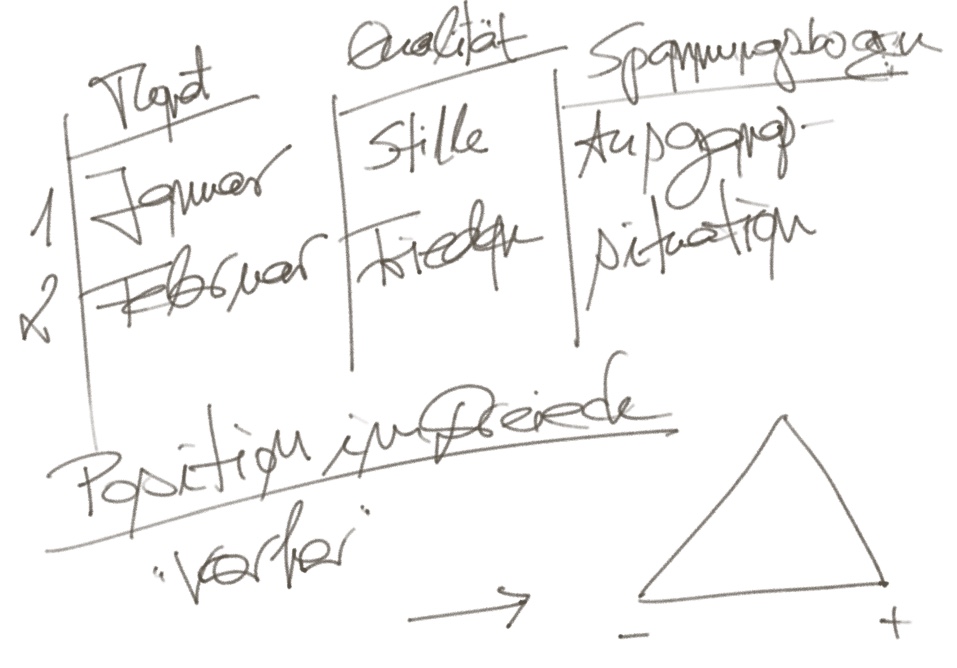 Monat Qualität Spannungsbogen
1 Januar Stille Ausgangs-
2 Februar Frieden situation
Position im Dreieck
"vorher"
→
- +